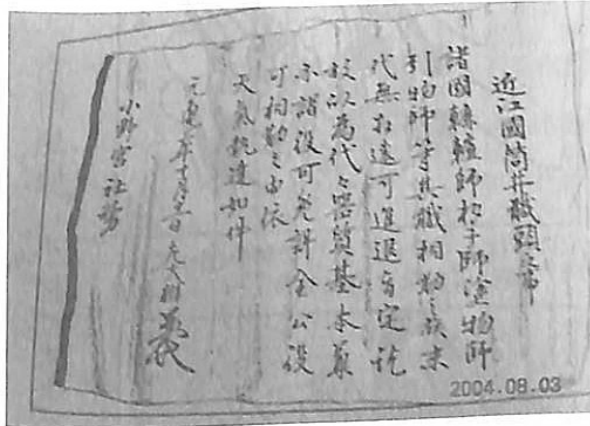 近江國筒井職頭之事
諸國轆轤師杓子師塗物師
引物師等其職相勤之族末
代無相違可進退旨定訖
以為代々器質基本兼
亦諸役可免許全公役
可相勤之由依
天氣執達如件
元亀年十月日
小野宮社務
2004.08.03